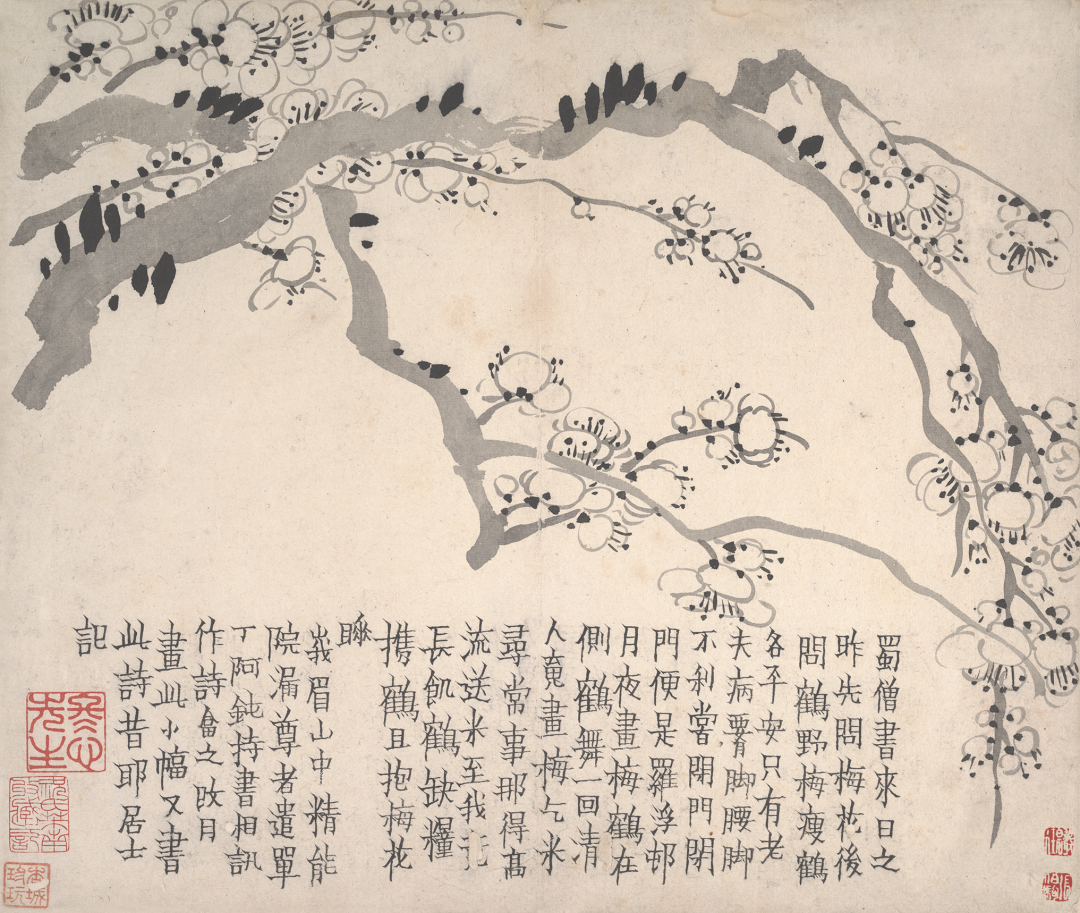 蜀僧書來日之
昨先問梅花後
問鶴野梅瘦鶴
各平安只有老
夫病腰脚腰脚
不利嘗閉門閉
門便是羅浮邨
月夜畫梅鶴在
側鶴舞一回清
人畫梅乞米
尋常事那得髙
流送米至我
長飢鶴缺糧
携鶴且抱梅花
睡
峩眉山中精能
院漏尊者遣單
丁阿鈍持書相訊
作詩畣之改月
畫此小幅又書
此詩昔耶居士
記
冬心先生